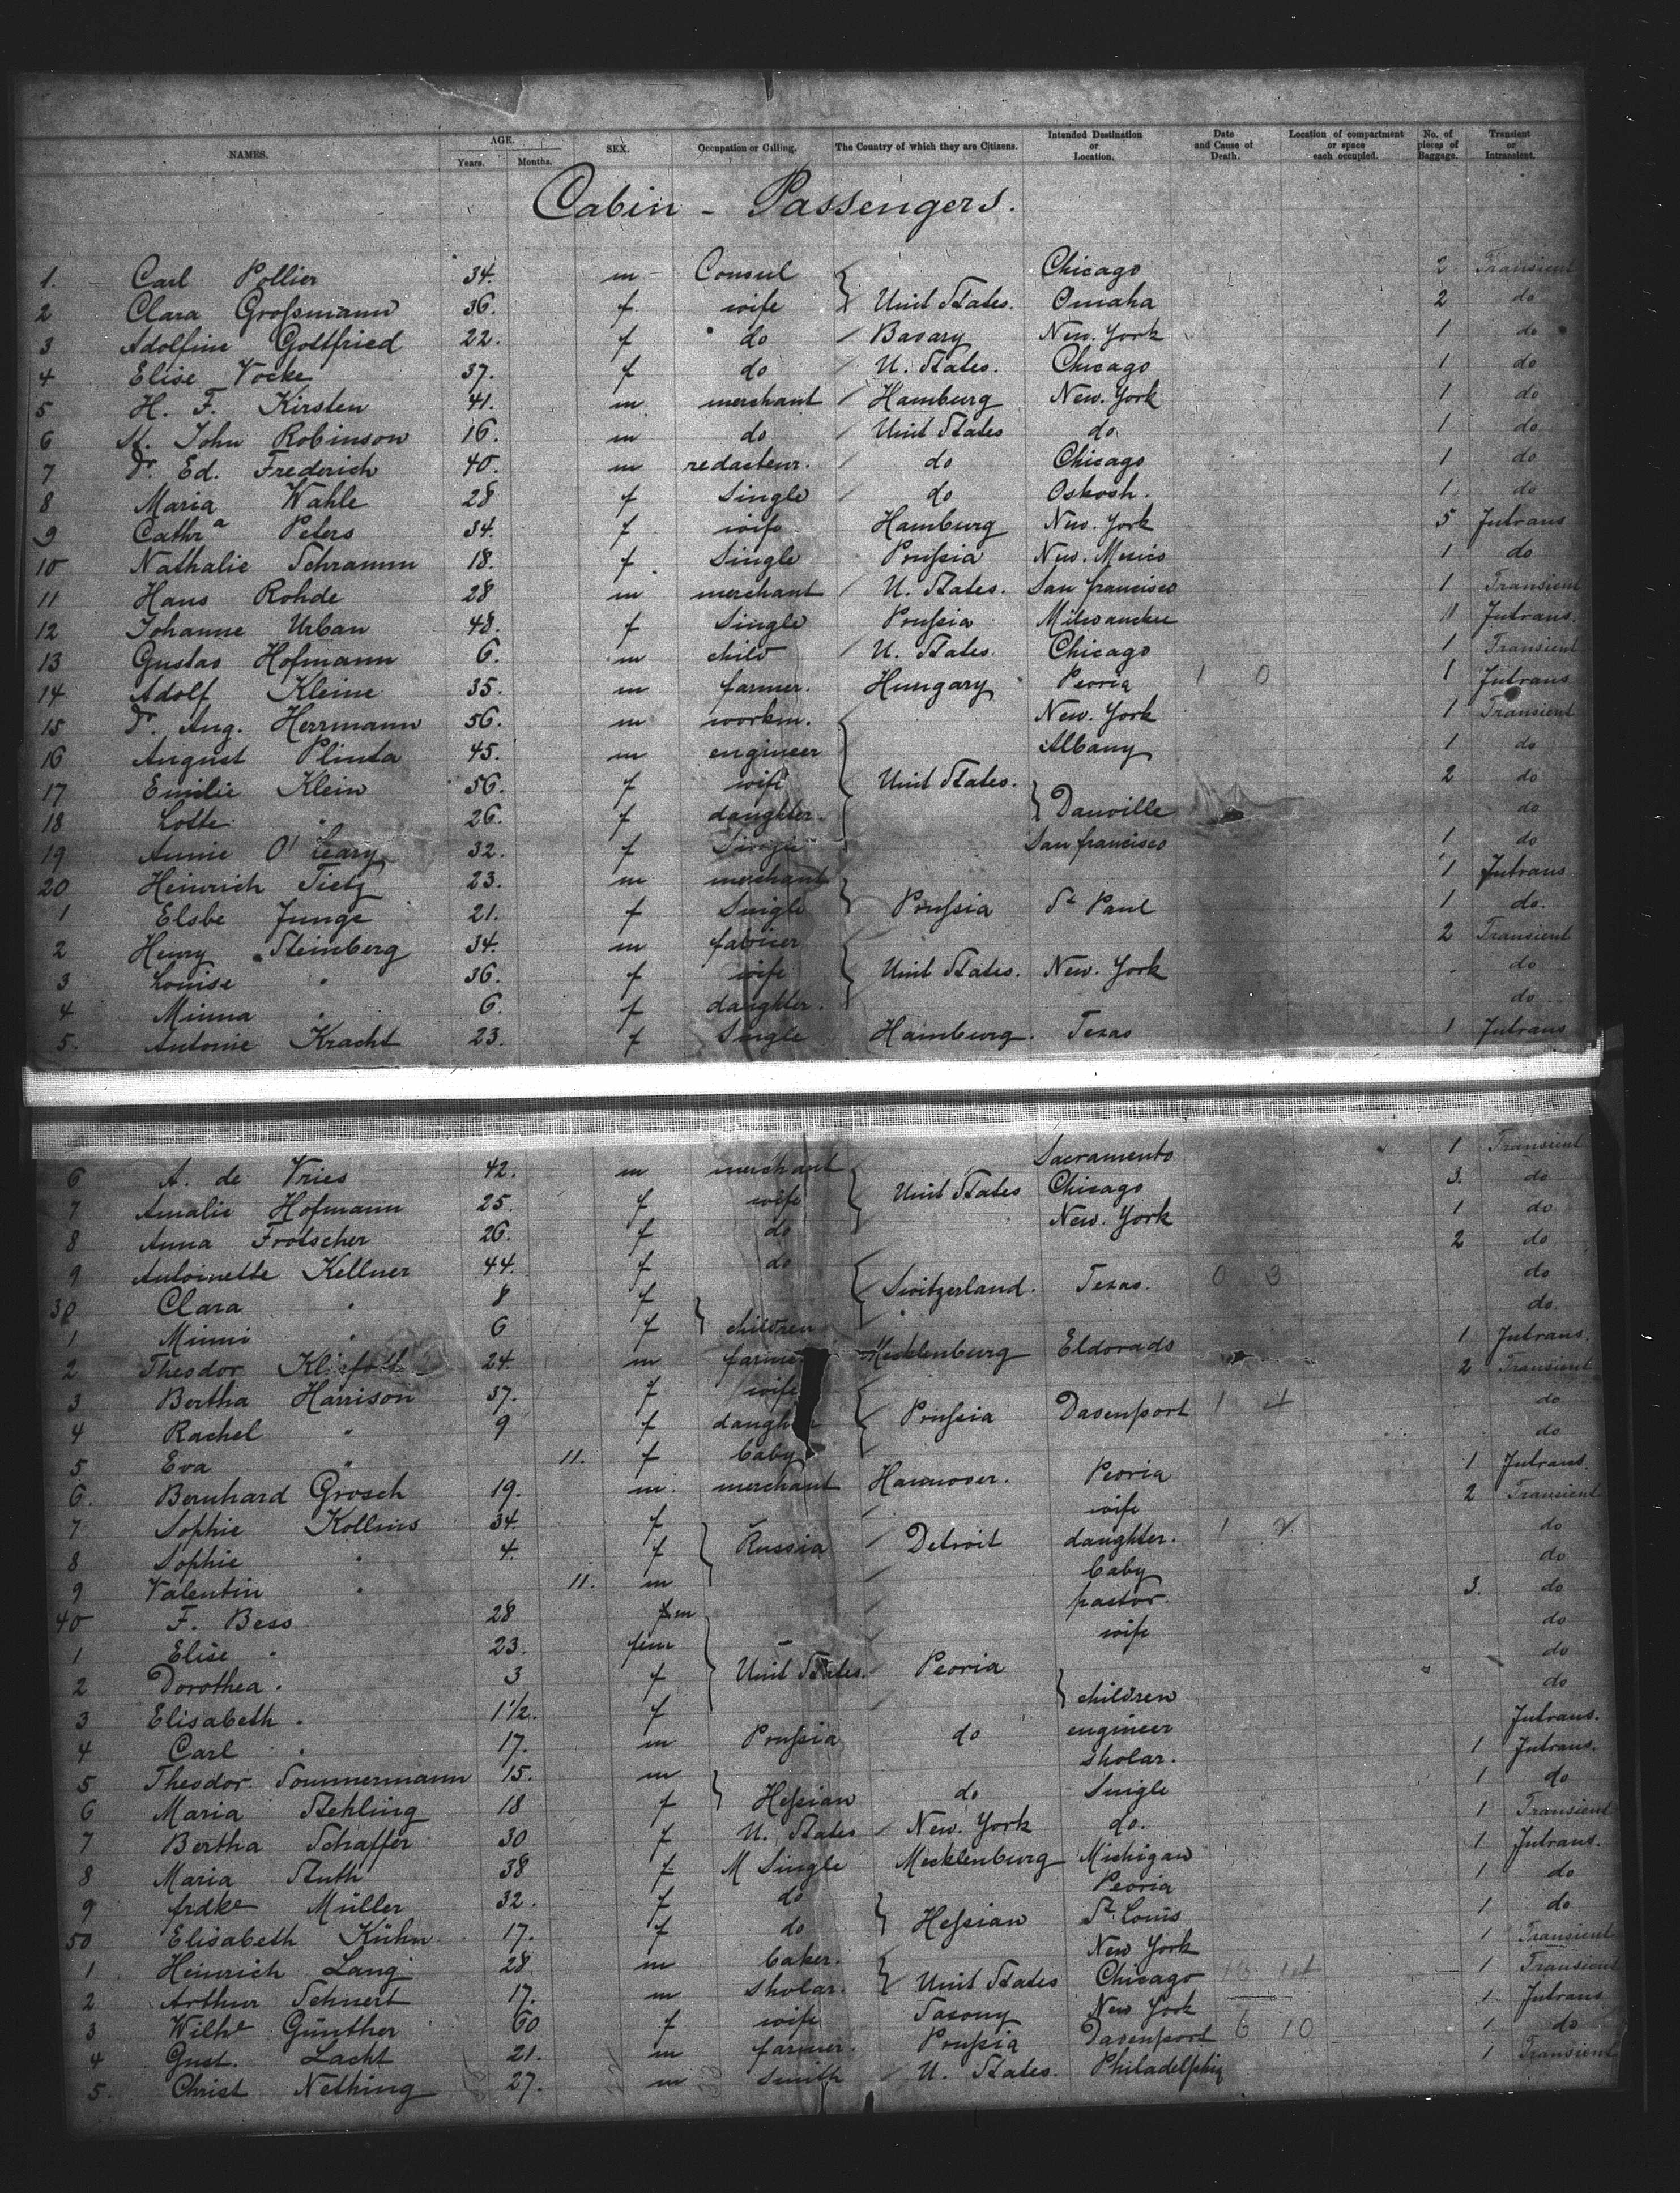 NAMES. AGE. Years. Months. SEX. Occupation or Calling. The Country of which they are Citizens. Intended Destination or Location. Date and Cause of Death. Location of compartment or space each occupied. No. of pieces of Baggage. Transient or Intransient.
Cabin - Passengers.
1. Carl Pollier 34. m Consul Chicago 2 Transient
2 Clara Großmann 36. f wife Unit States. Omaha 2 do
3 Adolfine Gottfried 22. f do Bavary New. York 1 do
4 Elise Vocke 37. f do U. States. Chicago 1 do
5 H. F. Kirsten 41. m merchant Hamburg New. York 1 do
6 St. John Robinson 16. m do Unit States do 1 do
7 Dr. Ed. Frederich 40. m redacteur. do Chicago 1 do
8 Maria Wahle 28 f Single do Oskosh. 1 do
9 Cathra Peters 34. f wife Hamburg New. York 5 Intrans
10 Nathalie Schramm 18. f Single Prußia New. Mexico 1 do
11 Hans Rohde 28 m merchant U. States. San francisco 1 Transient
12 Johanne Urban 48. f Single Prußia Milwaukee 11 Intrans.
13 Gustav Hofmann 6. m child U. States. Chicago 1 Transient
14 Adolf Kleine 35. m farmer. Hungary Peoria 1 0 1 Intrans
15 Dr. Aug. Herrmann 56. m workm. New. York 1 Transient
16 August Plinta 45. m engineer Albany 1 do
17 Emilie Klein 56. f wife Unit States. 2 do
18 Lotte " 26. f daughter. Danville do
19 Annie O'Leary 32. f Single San francisco 1 do
20 Heinrich Tietz 23. m merchant 1 Intrans
1 Elsbe Junge 21. f Single Prußia St Paul 1 do.
2 Henry Steinberg 34. m 2 Transient
3 Louise " 36. f wife Unit States. New. York do
4 Minna " 6. f daughter. do
5. Antonie Kracht 23. f Single Hamburg. Texas 1 Intrans
6 A. de Vries 42. m merchant Sacramento 1 Transient
7 Amalie Hofmann 25. f wife Unit States Chicago 3. do
8 Anna Frotscher 26. f do New. York 1 do
9 Antoinette Kellner 44. f do 2 do
30 Clara " 8 f Switzerland. Texas. 0 3 do
1 Minni " 6 f children do
2 Theodor 24. m farmer Mecklenburg Eldorado 1 Intrans.
3 Bertha Harrison 37. f wife 2 Transient
4 Rachel " 9 f daughter Prußia Davenport 1 4 do
5 Eva " 11. f baby do
6. Bernhard Grosch 19. m. merchant Hannover. Peoria 1 Intrans.
7 Sophie Kollins 34. f wife 2 Transient
8 Sophie " 4. f Russia Detroit daughter. 1 2 do
9 Valentin " 11. m baby do
40 F. Bess 28 m pastor. 3. do
1 Elise " 23. fem wife do
2 Dorothea " 3 f Unit States. Peoria do
3 Elisabeth " 1 1/2. f children do
4 Carl " 17. m Prußia do engineer Intrans.
5 Theodor. Sommermann 15. m sholar. 1 Intrans.
6 Maria Stehling 18 f Heßian do Single 1 do
7 Bertha Schaffer 30 f U. States New. York do. 1 Transient
8 Maria Stuth 38 f M Single Mecklenburg Michigan 1 Intrans.
9 frdke Müller 32. f do Peoria 1 do
50 Elisabeth Kühn 17. f do Heßian St. Louis 1 do
1 Heinrich Lang 28 m baker. New York 1 Transient
2 Arthur Schnert 17. m sholar. Unit States Chicago 1 Transient
3 Wilhe Günther 60 f wife Saxony New York 1 Intrans
4 Gust. Lacht 21. m farmer. Prußia Davenport 6 10 1 do
5. Christ Nething 27. m Smith U. States. Philadelphia 1 Transient